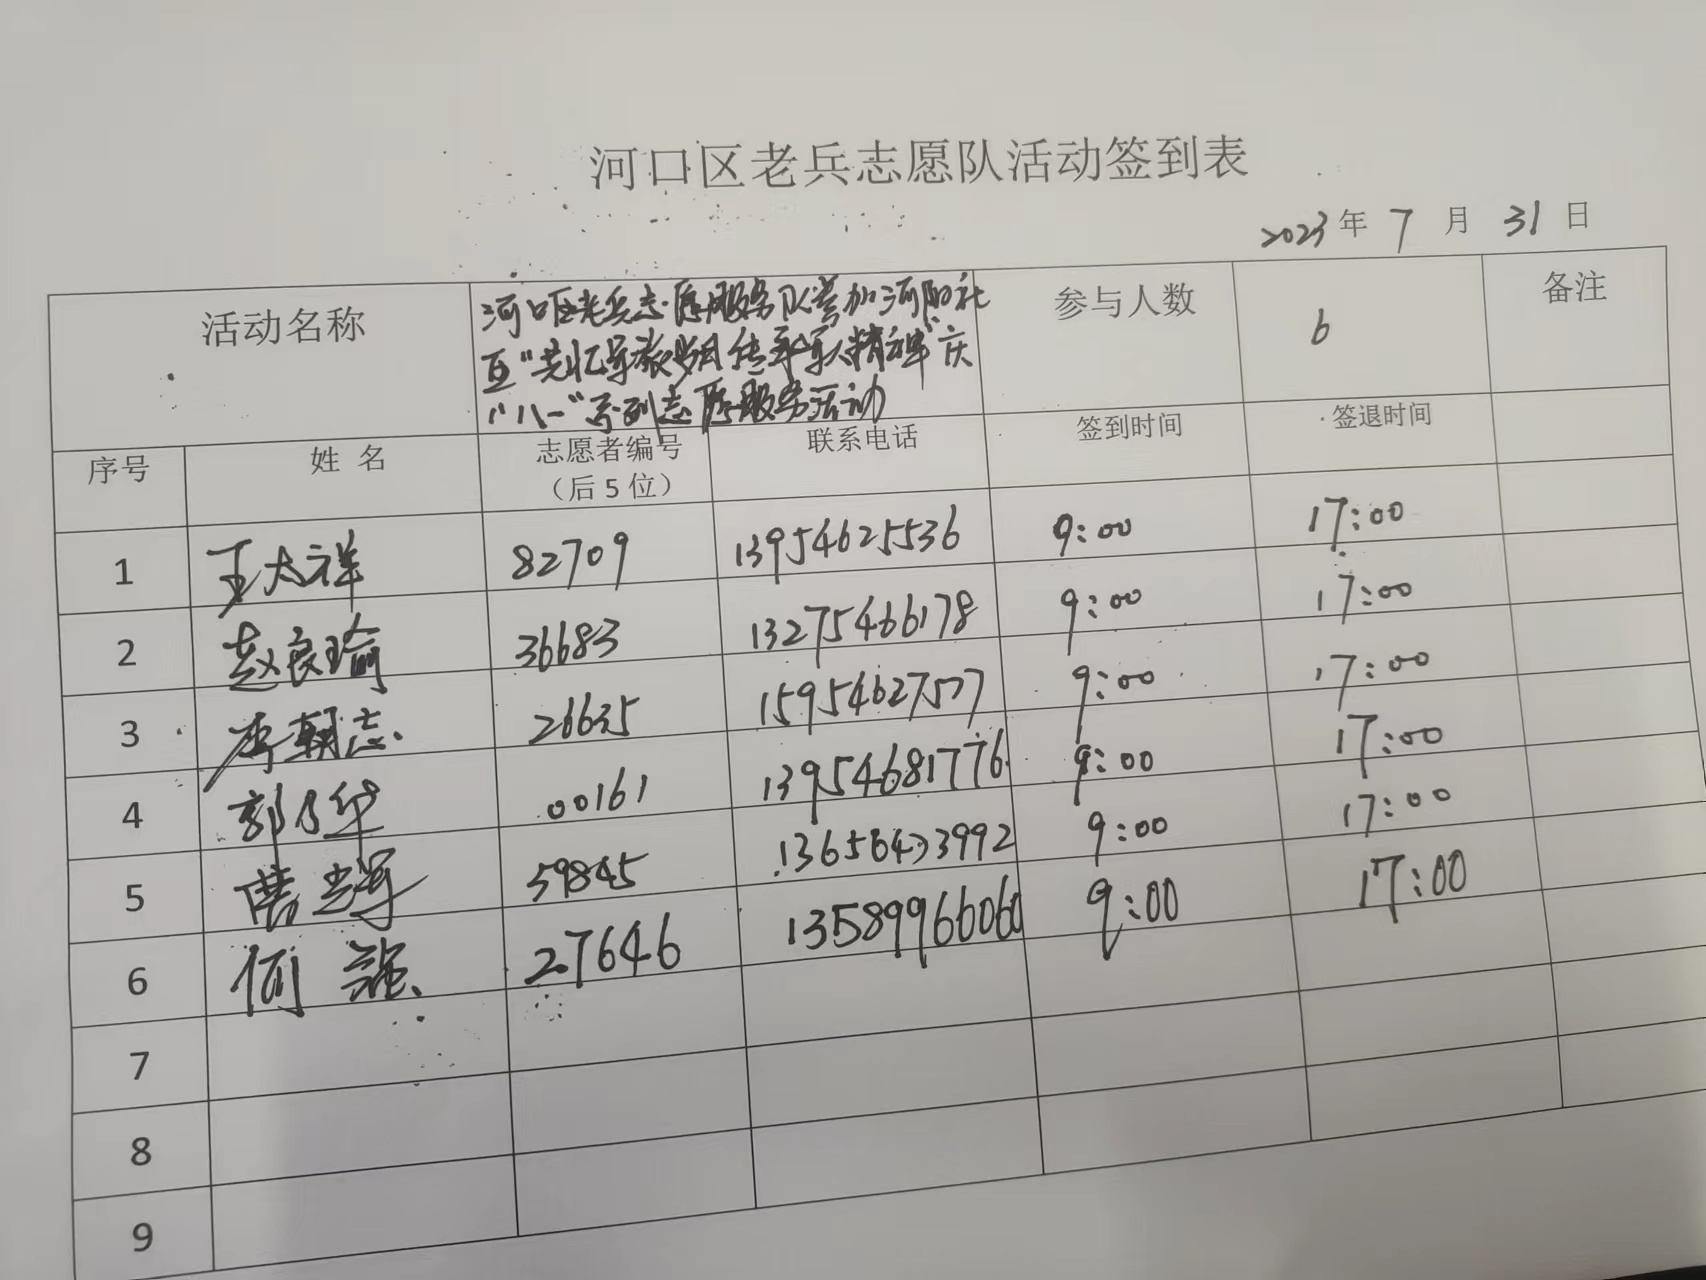 河口区老兵志愿队活动签到表
2023年 7 月 31 日
活动名称 河口区老兵志愿服务队参加河阳社 参与人数 6 备注
区"共忆军旅岁月 传承军人精神"庆
"八一"系列志愿服务活动
序号 姓 名 志愿者编号 联系电话 签到时间 签退时间
（后5位）
1 王太祥 82709 13954625536 9:00 17:00
2 赵良瑜 36683 13275466178 9:00 17:00
3 李朝志 26635 15954627577 9:00 17:00
4 郭乃华 00161 13954681776 9:00 17:00
5 59845 9:00 17:00
6 何强 27646 13589966060 9:00 17:00
7
8
9